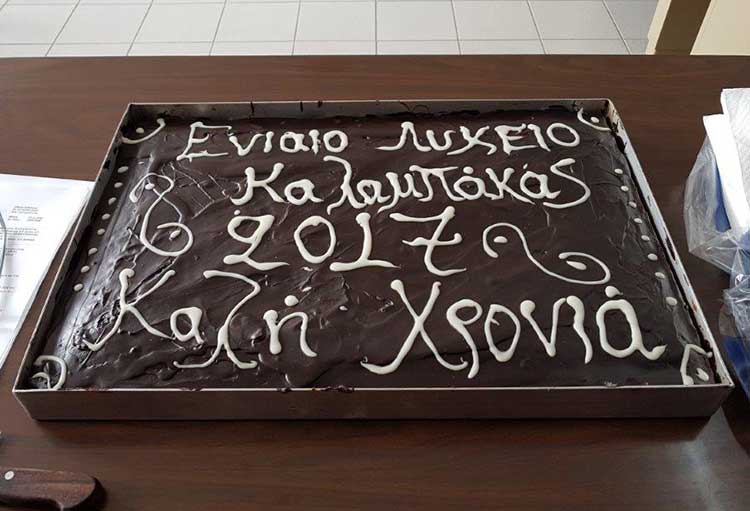 Ενιαιο Λυκειο
Καλαμπάκας
2017
Καλή Χρονιά